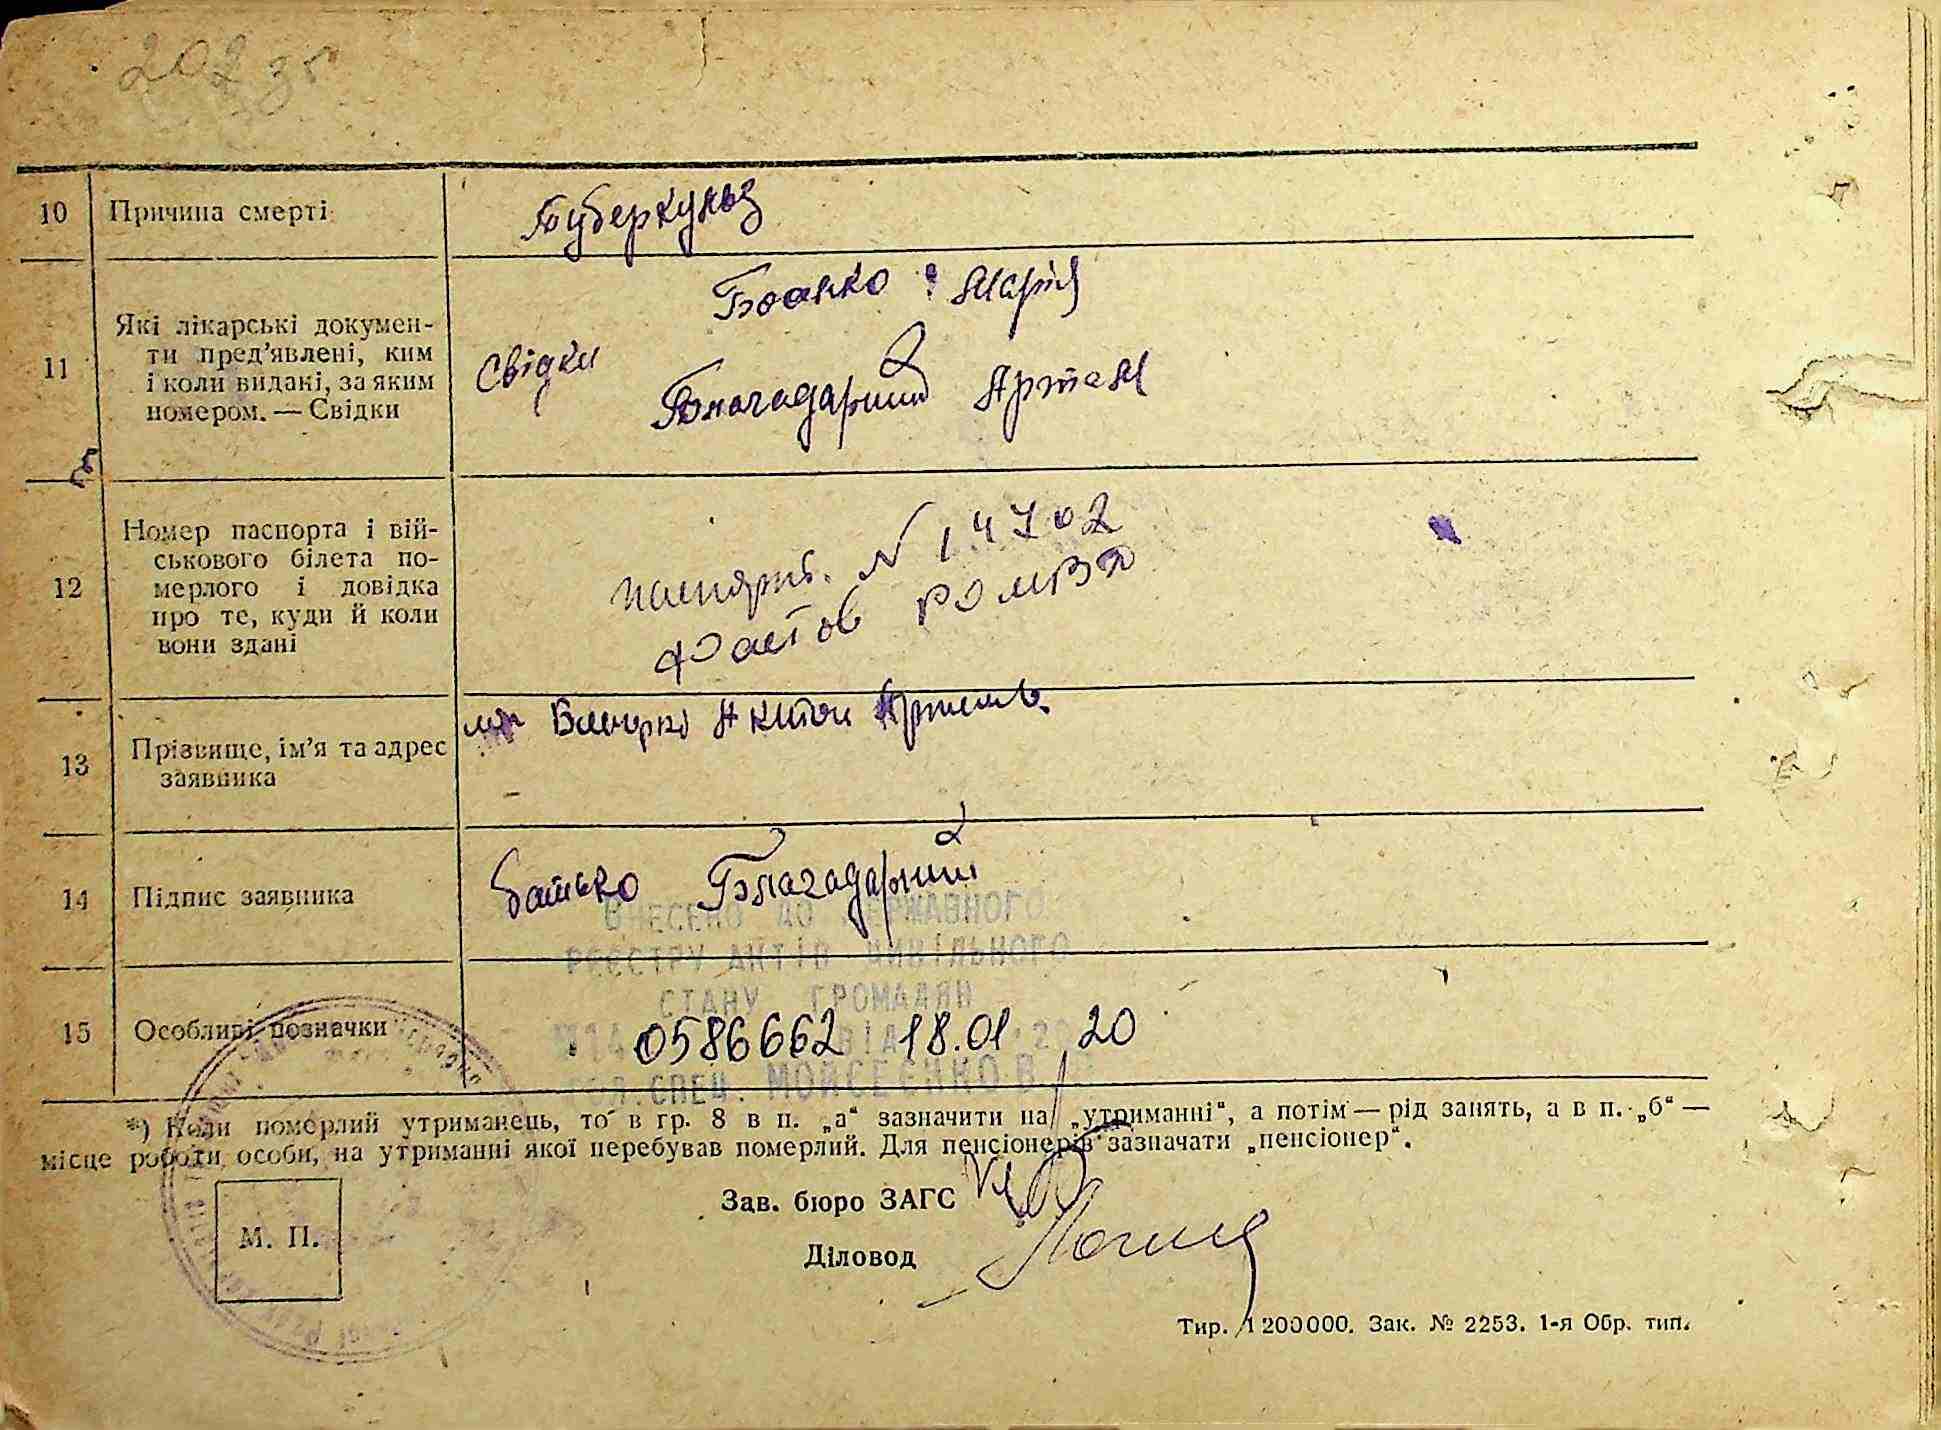 202
10 Причина смерті Туберкульз
Боанко Марія
11 Які лікарські докумен-
ти пред'явлені, ким
і коли видані, за яким
номером. — Свідки
Свідки
Благадарний Артем
12 Номер паспорта і вій-
ськового білета по-
мерлого і довідка
про те, куди й коли
вони здані
N 14702
Фастов РО МВД
13 Прізвище, ім'я та адрес
заявника
14 Підпис заявника батько Благадарний
ВНЕСЕНО ДО ДЕРЖАВНОГО
РЕЄСТРУ АКТІВ ЦИВІЛЬНОГО
СТАНУ ГРОМАДЯН
15 Особливі позначки 0586662 ВІД 18.01 20
ГОЛ. СПЕЦ. МОЙСЕЄНКО В
*) Коли померлий утриманець, то в гр. 8 в п. „а“ зазначити на „утриманні“, а потім — рід занять, а в п. „б“ —
місце роботи особи, на утриманні якої перебував померлий. Для пенсіонерів зазначати „пенсіонер“.
Зав. бюро ЗАГС
М. П.
Діловод
Тир. 1200000. Зак. № 2253. 1-я Обр. тип.